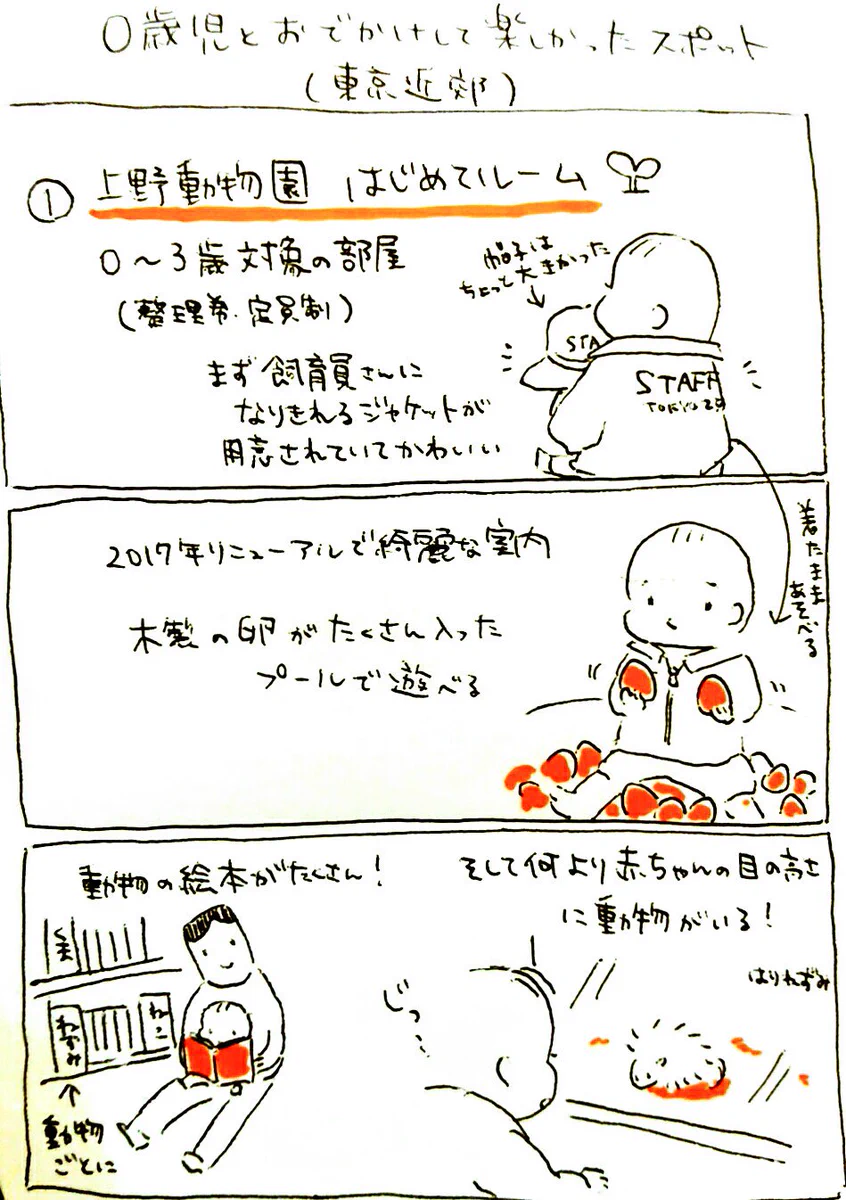 0歳児とおでかけして楽しかったスポット
(東京近郊)
① 上野動物園 はじめてルーム
0〜3歳対象の部屋
(整理券・定員制)
まず飼育員さんに
なりきれるジャケットが
用意されていてかわいい
帽子は
ちょっと大きかった
STA
STAFF
TOKYO ZO
着たまま
あそべる
2017年リニューアルで綺麗な室内
木製の卵がたくさん入った
プールで遊べる
動物の絵本がたくさん!
くま
ねずみ
ねこ
動物
ごとに
そして何より赤ちゃんの目の高さ
に動物がいる!
じっ…
はりねずみ